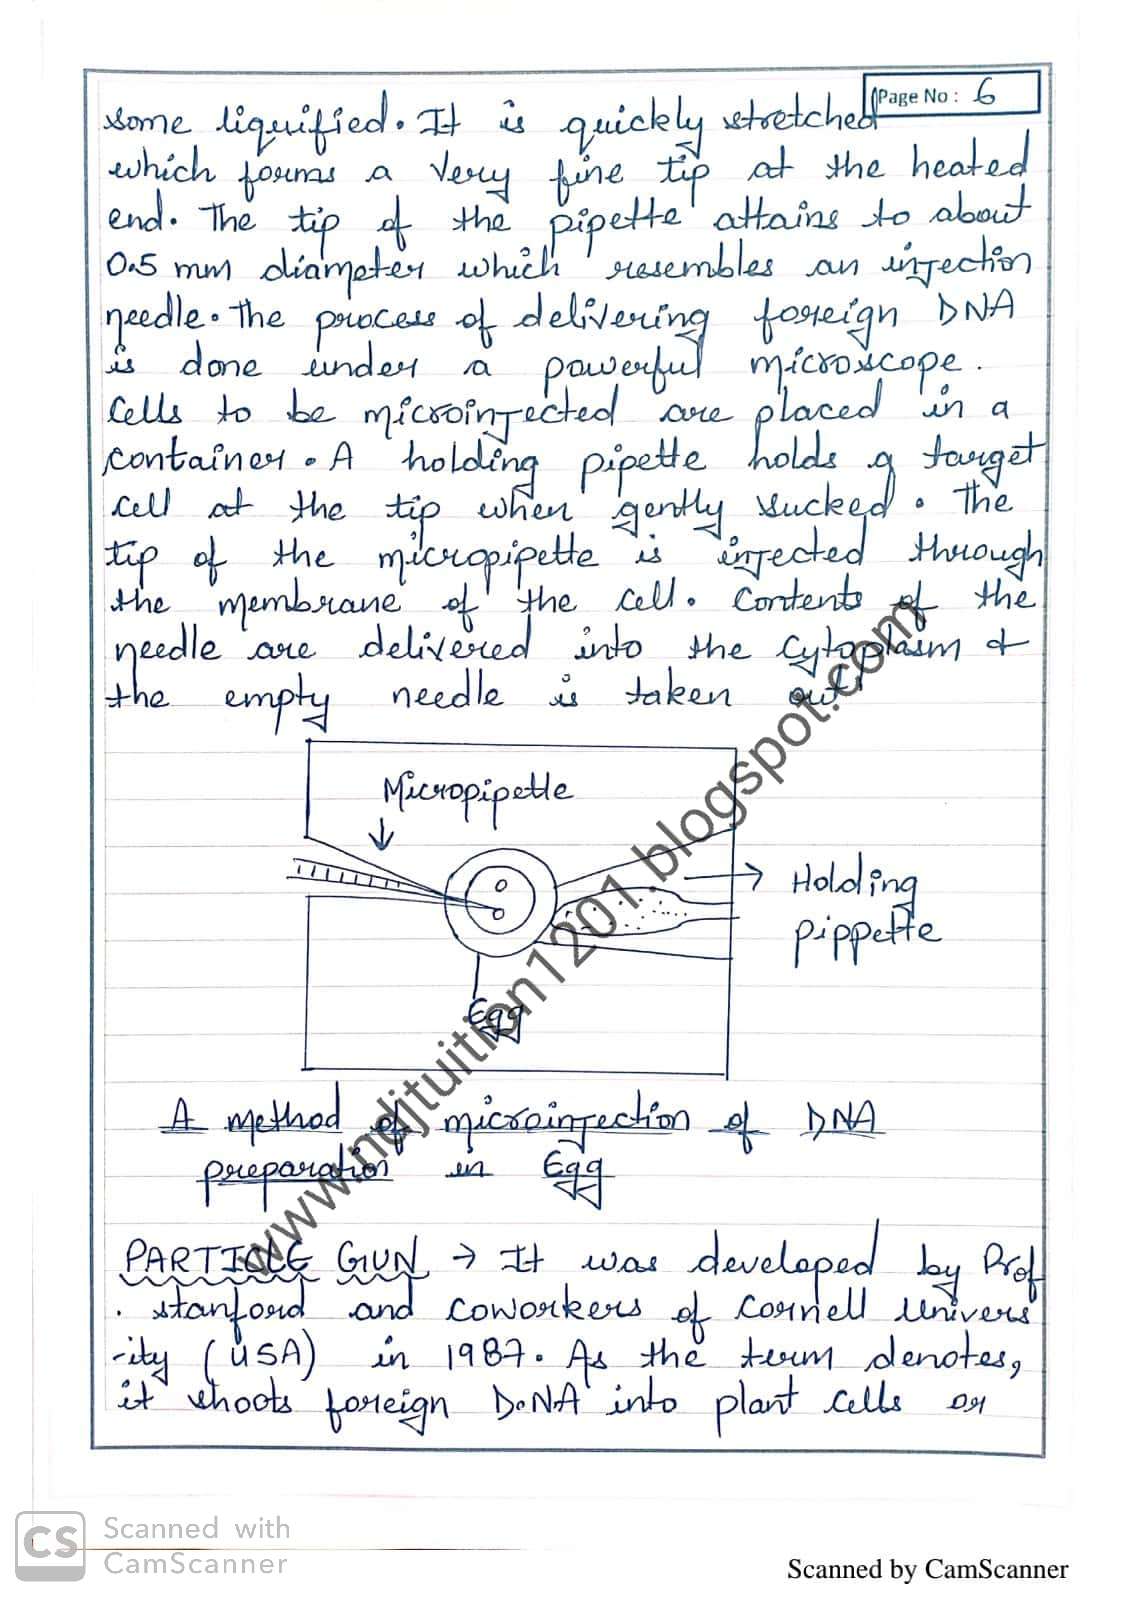 Page No : 6
some liquified. It is quickly stretched
which forms a very fine tip at the heated
end. The tip of the pipette attains to about
0.5 mm diameter which resembles an injection
needle. The process of delivering foreign DNA
is done under a powerful microscope.
Cells to be microinjected are placed in a
container. A holding pipette holds a target
cell at the tip when gently sucked. The
tip of the micropipette is injected through
the membrane of the cell. Contents of the
needle are delivered into the cytoplasm &
the empty needle is taken out.
Micropipette
Holding
pippette
Egg
A method of microinjection of DNA
preparation in Egg
PARTICLE GUN → It was developed by Prof
. stanford and coworkers of Cornell Univers
-ity (USA) in 1987. As the term denotes,
it shoots foreign D.N.A into plant cells or
www.ndjtuition1201.blogspot.com
CS Scanned with
CamScanner
Scanned by CamScanner